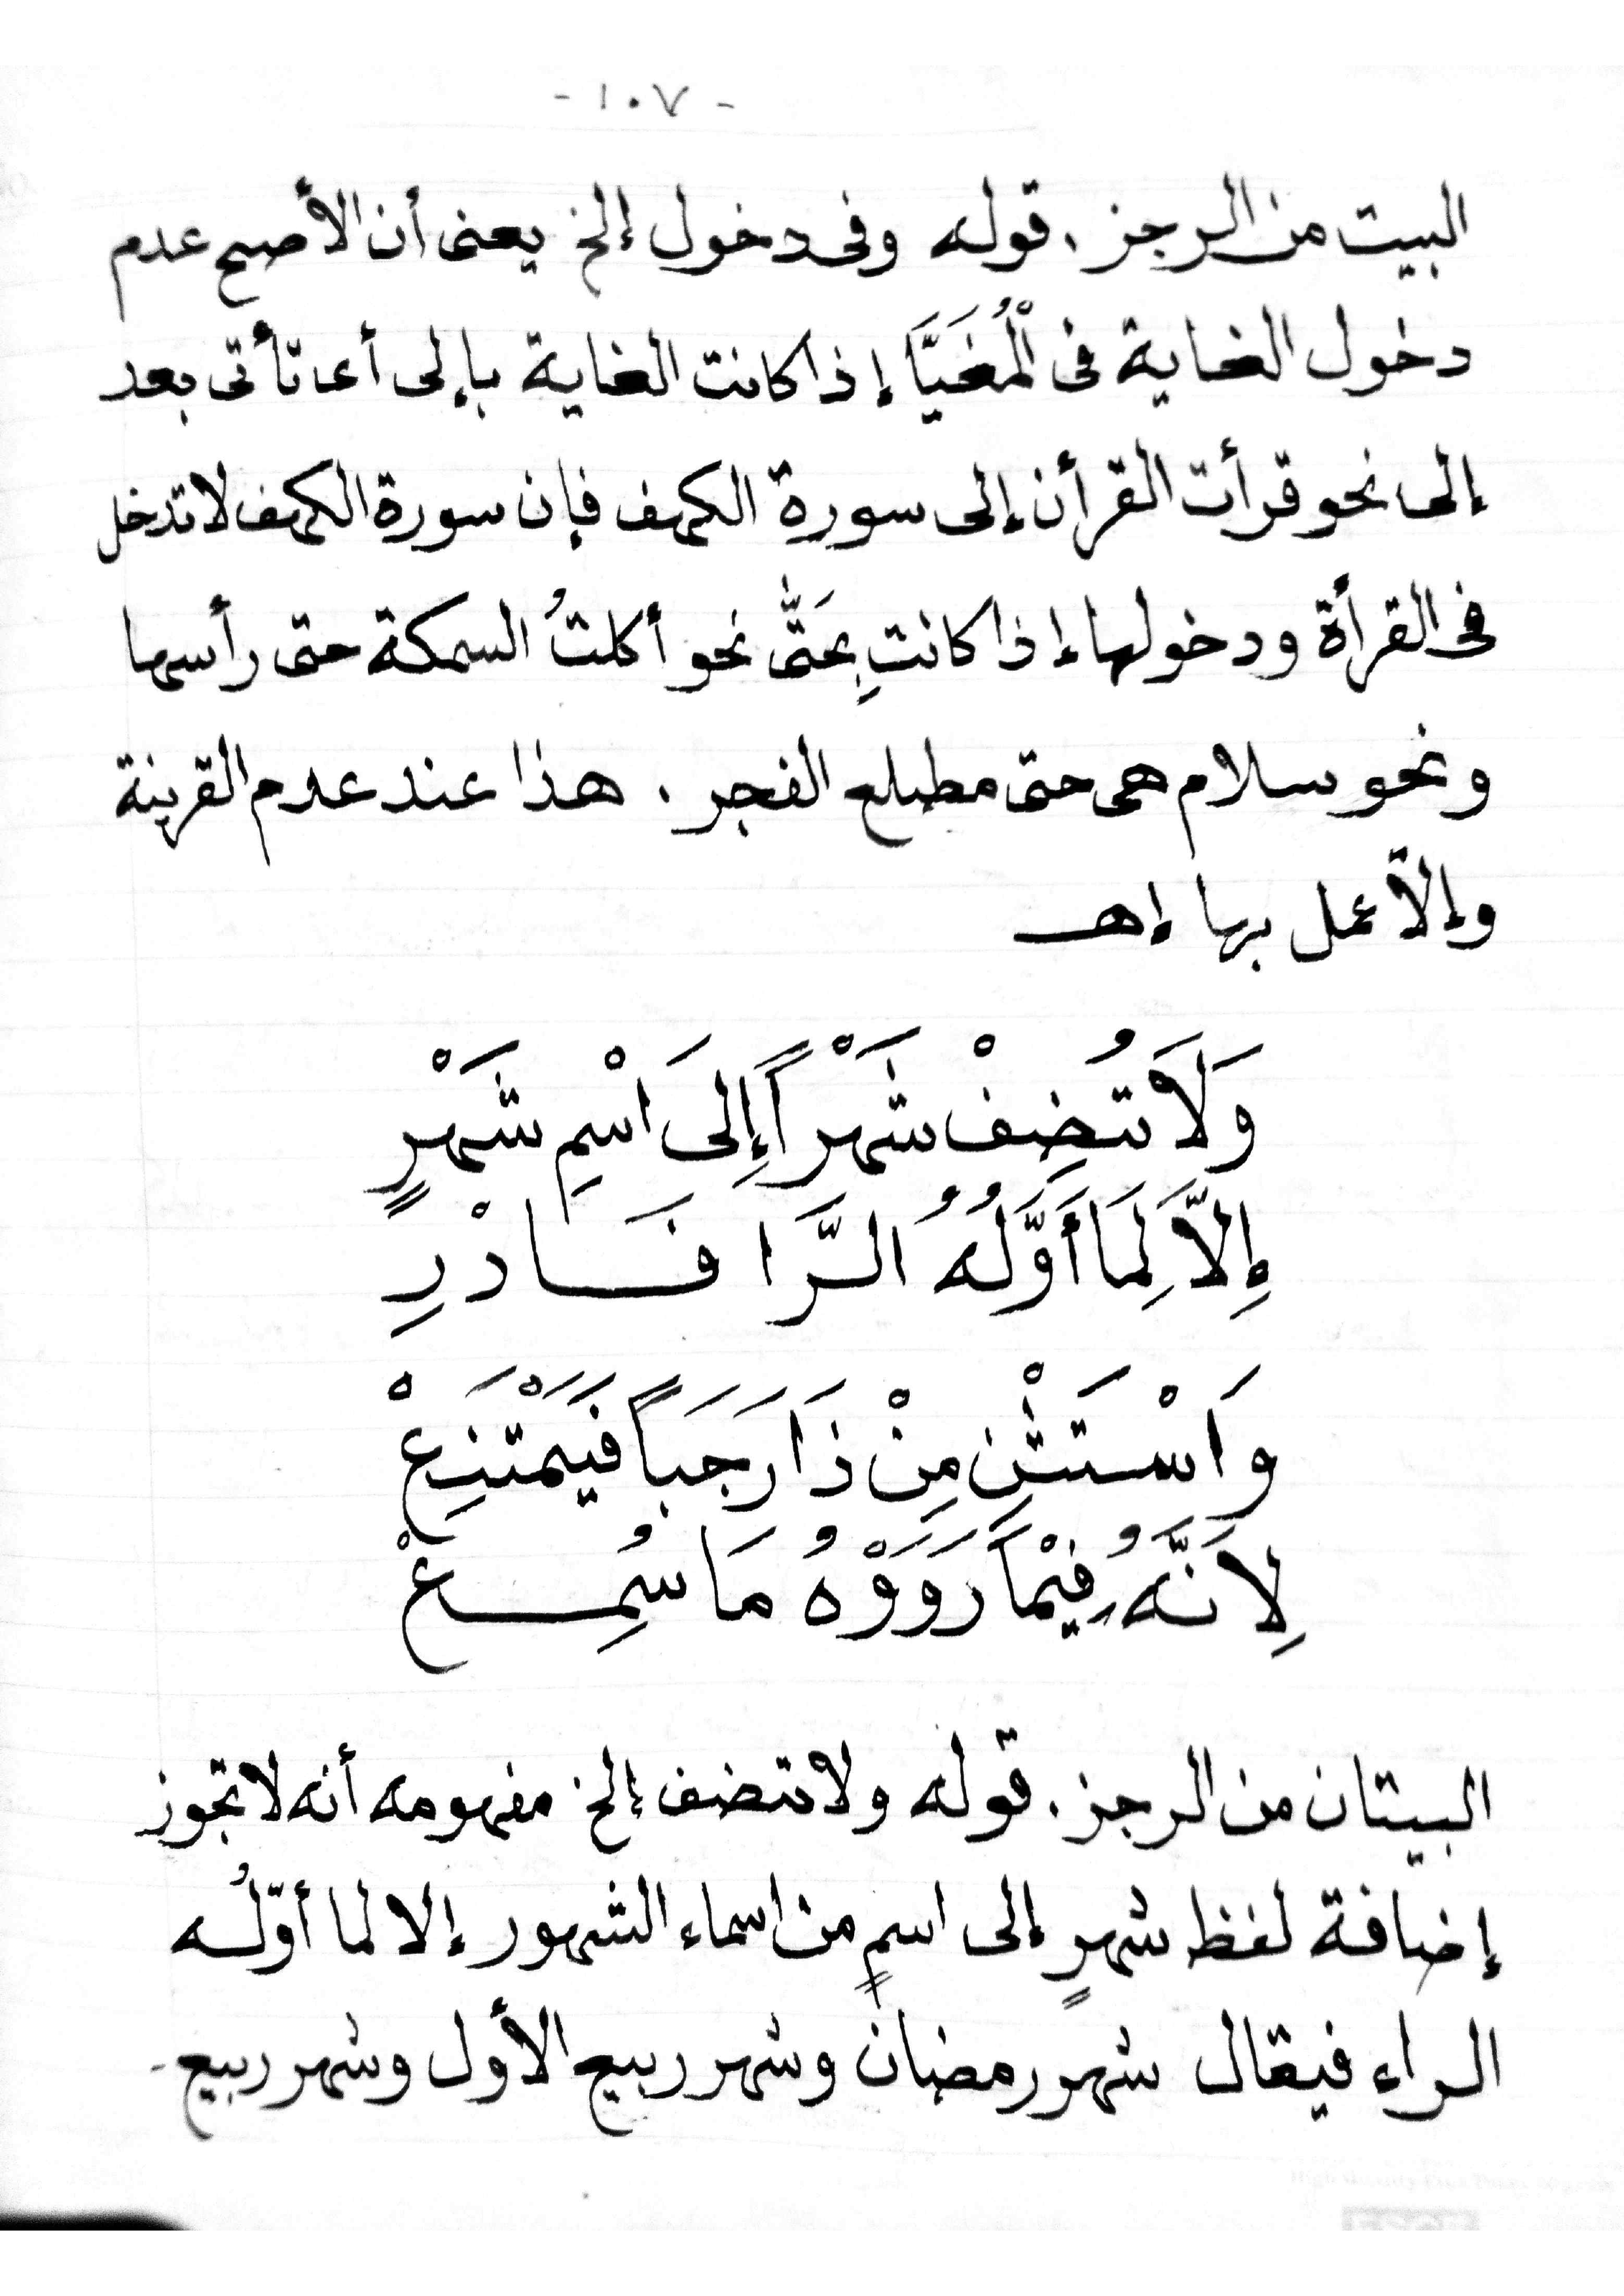 - ١٠٧ -
البيت من الرجز . قوله وفى دخول إلخ يعنى أن الأصح عدم
دخول الغاية فى الْمُغَيَّا إذا كانت الغاية بإلى أى تأتى بعد
إلى نحو قرأت القرأن إلى سورة الكهف فإن سورة الكهف لا تدخل
فى القرأة ودخولها إذا كانتِ بِحَتَّى نحو أكلتُ السمكة حتى رأسها
ونحو سلام هى حتى مطلع الفجر . هذا عند عدم القرينة
وإلاّ عمل بها إهـ
وَلَا تُضِفْ شَهْراً إِلَى اسْمِ شَهْرٍ
إِلاَّ لِمَا أَوَّلُهُ الرَّا فَادْرِ
وَاسْتَثْنِ مِنْ ذَا رَجَباً فَيَمْتَنِعْ
لِاَنَّهُ فِيْمَا رَوَوْهُ مَا سُمِعْ
البيتان من الرجز . قوله ولا تضف إلخ مفهومه أنه لا تجوز
إضافة لفظ شهرٍ إلى اسمٍ من اسماء الشهور إلا لما أوّلُه
الراء فيقال شهر رمضان وشهر ربيع الأول وشهر ربيع -